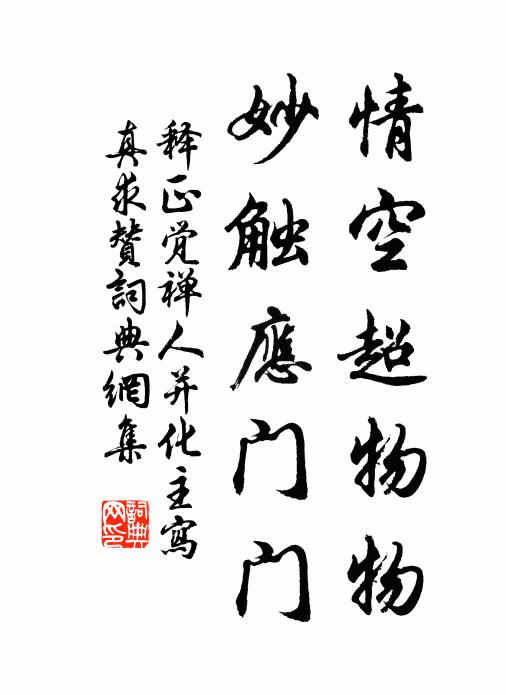 情空超物物
妙触應门门
释正觉禅人并化主寫
真求赞詞典網集
詞典网印